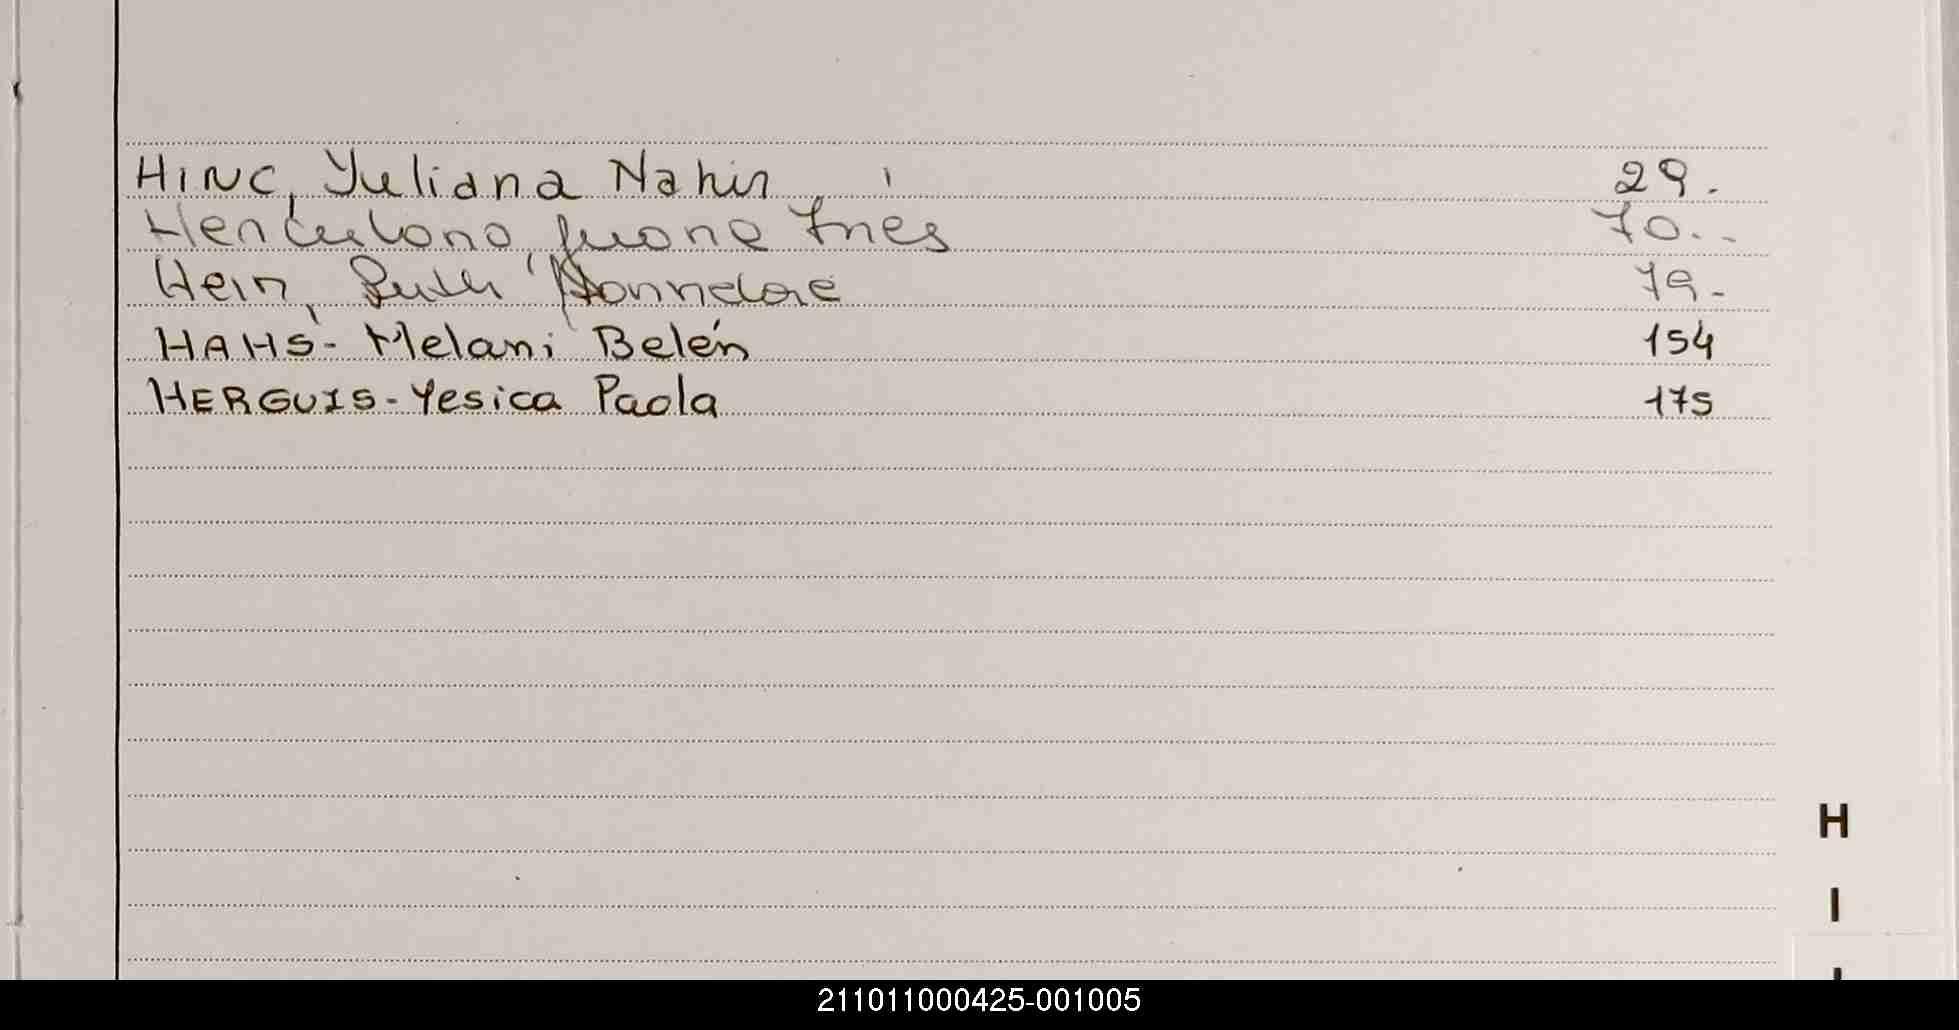 HINC, Yuliana Nahir 29.
Juana Ines 70..
Hein, Ruth Hannelore 79-
HAHS - Melani Belén 154
HERGUIS - Yesica Paola 175
H
I
211011000425-001005